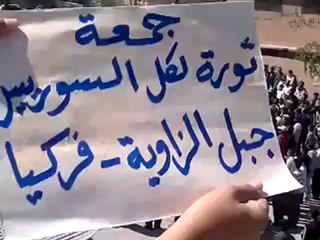 جمعة
ثورة لكل السوريين
جبل الزاوية - فركيا